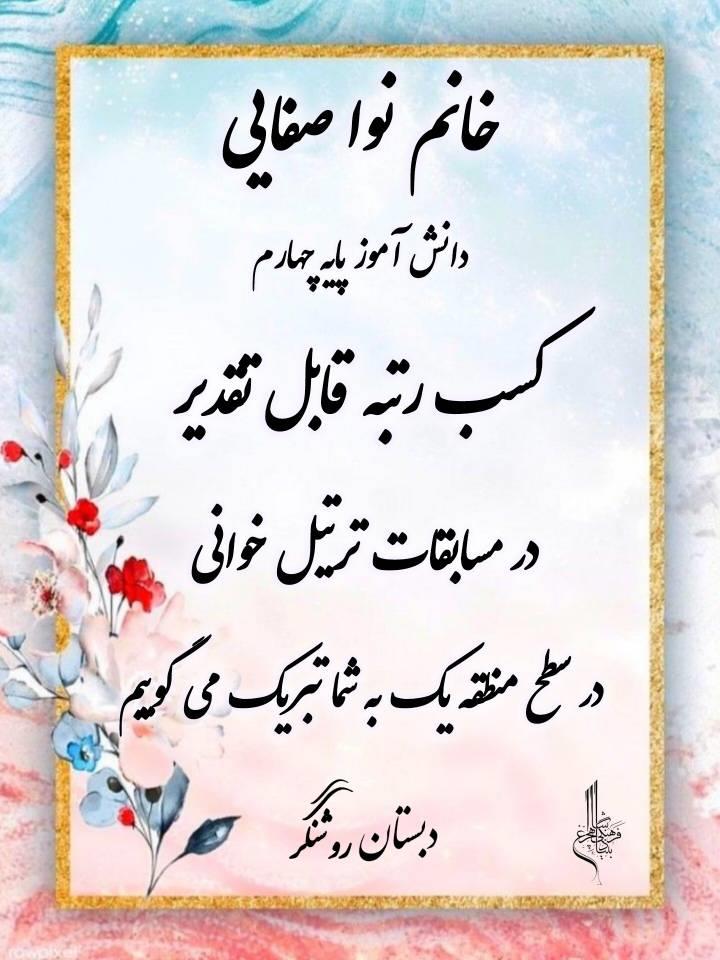 خانم نوا صفایی
دانش آموز پایه چهارم
کسب رتبه قابل تقدیر
در مسابقات ترتیل خوانی
در سطح منطقه یک به شما تبریک می گوییم
دبستان روشنگر
rawpixel